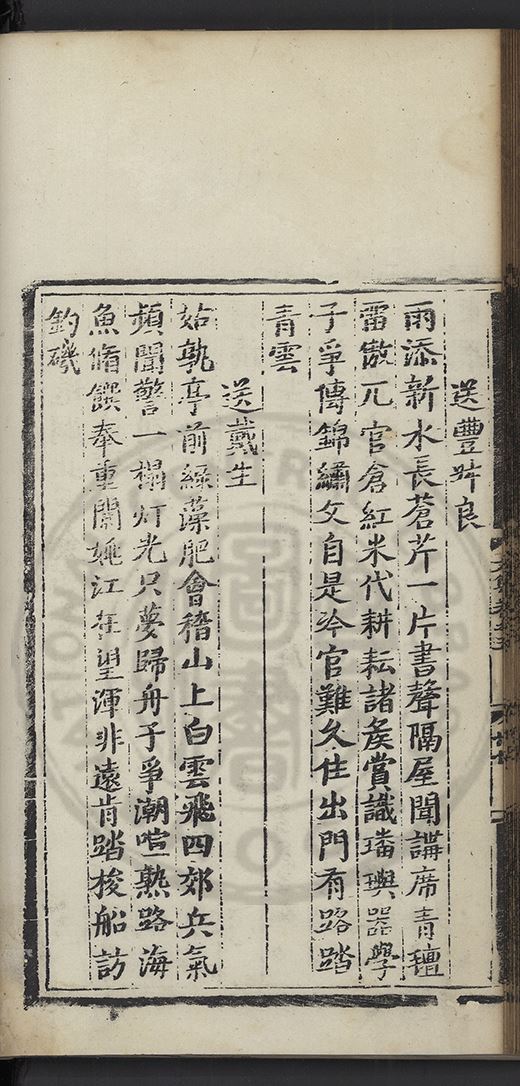 送豐舜良
雨添新水長蒼芹一片書聲隔屋聞講席青氊
雷傲兀官倉紅米代耕耘諸矦賞識璠璵器學
子爭傳錦繡文自是冷官難久住出門有路踏
青雲
送戴生
姑孰亭前綠藻肥會稽山上白雲飛四郊兵氣
頻聞警一榻灯光只夢歸舟子爭潮喧熟路海
魚脩饌奉重闈姚江在望渾非遠肯踏梭船訪
釣磯